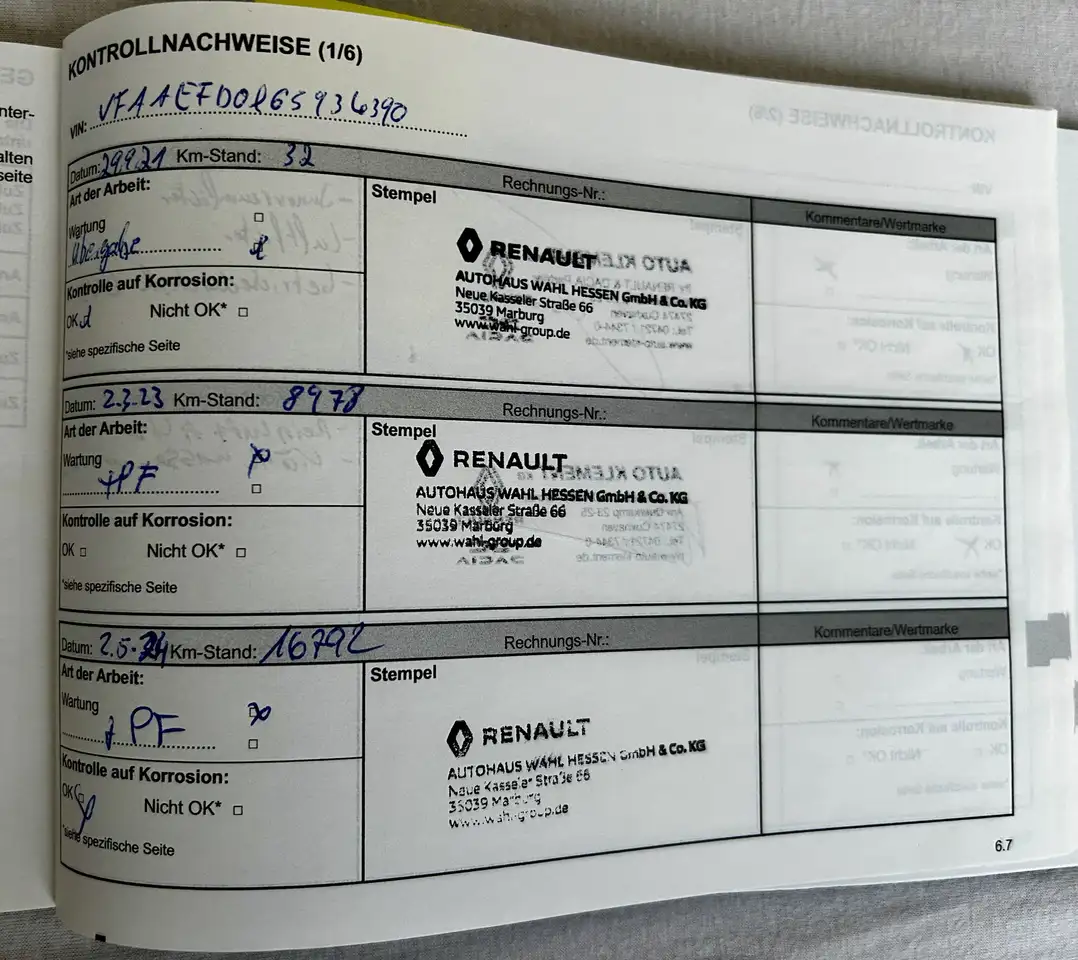 KONTROLLNACHWEISE (1/6)
VIN:
Datum: 29.9.21 Km-Stand: 32 Rechnungs-Nr.: Kommentare/Wertmarke
Art der Arbeit: Stempel
Wartung
RENAULT
AUTOHAUS WAHL HESSEN GmbH & Co. KG
Neue Kasseler Straße 66
35039 Marburg
www.wahl-group.de
Kontrolle auf Korrosion:
OK Nicht OK*
*siehe spezifische Seite
Datum: 2.3.23 Km-Stand: 8978 Rechnungs-Nr.: Kommentare/Wertmarke
Art der Arbeit: Stempel
Wartung
+PF
RENAULT
AUTOHAUS WAHL HESSEN GmbH & Co. KG
Neue Kasseler Straße 66
35039 Marburg
www.wahl-group.de
Kontrolle auf Korrosion:
OK Nicht OK*
*siehe spezifische Seite
Datum: 2.5.24 Km-Stand: 16792 Rechnungs-Nr.: Kommentare/Wertmarke
Art der Arbeit: Stempel
Wartung
+PF
RENAULT
AUTOHAUS WAHL HESSEN GmbH & Co. KG
Neue Kasseler Straße 66
35039 Marburg
www.wahl-group.de
Kontrolle auf Korrosion:
OK Nicht OK*
*siehe spezifische Seite
6.7
nter-
alten
seite